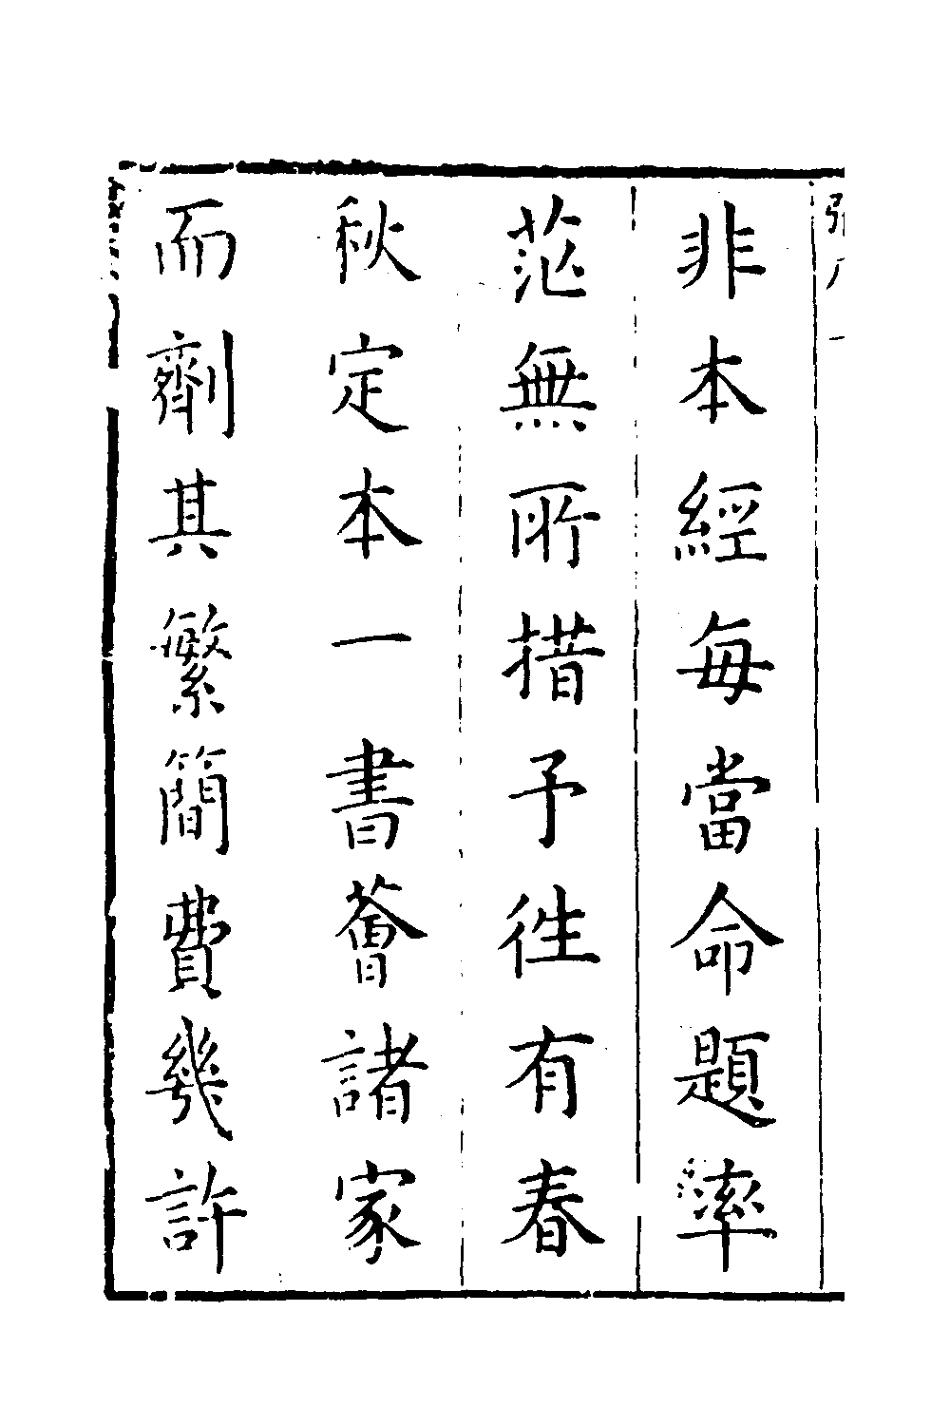 非本經每當命題率
茫無所措予徃有春
秋定本一書薈諸家
而劑其繁簡費幾許